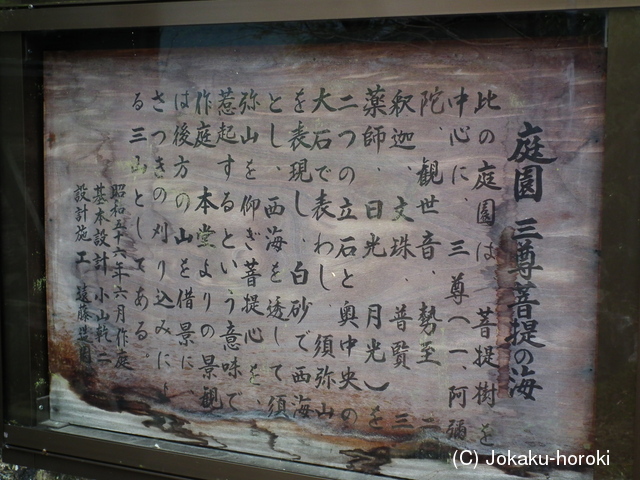 庭園 三尊菩提の海
此の庭園は、菩提樹を
中心に、三尊(一、阿彌
陀、観世音、勢至 二
釈迦、文珠、普賢 三
薬師、日光、月光)を
二つの立石と奥中央の
大石で表わし、須弥山
を表現し、白砂で西海
とし、西海を透して須
弥山を仰ぎ菩提心を、
惹起するという意味で
作庭 本堂よりの景観
は後方の山を借景に、
さつきの刈り込みに
る三山としてある。
昭和五十六年六月作庭
基本設計 小山乾二
設計施工 遠藤造園
(C) Jokaku-horoki